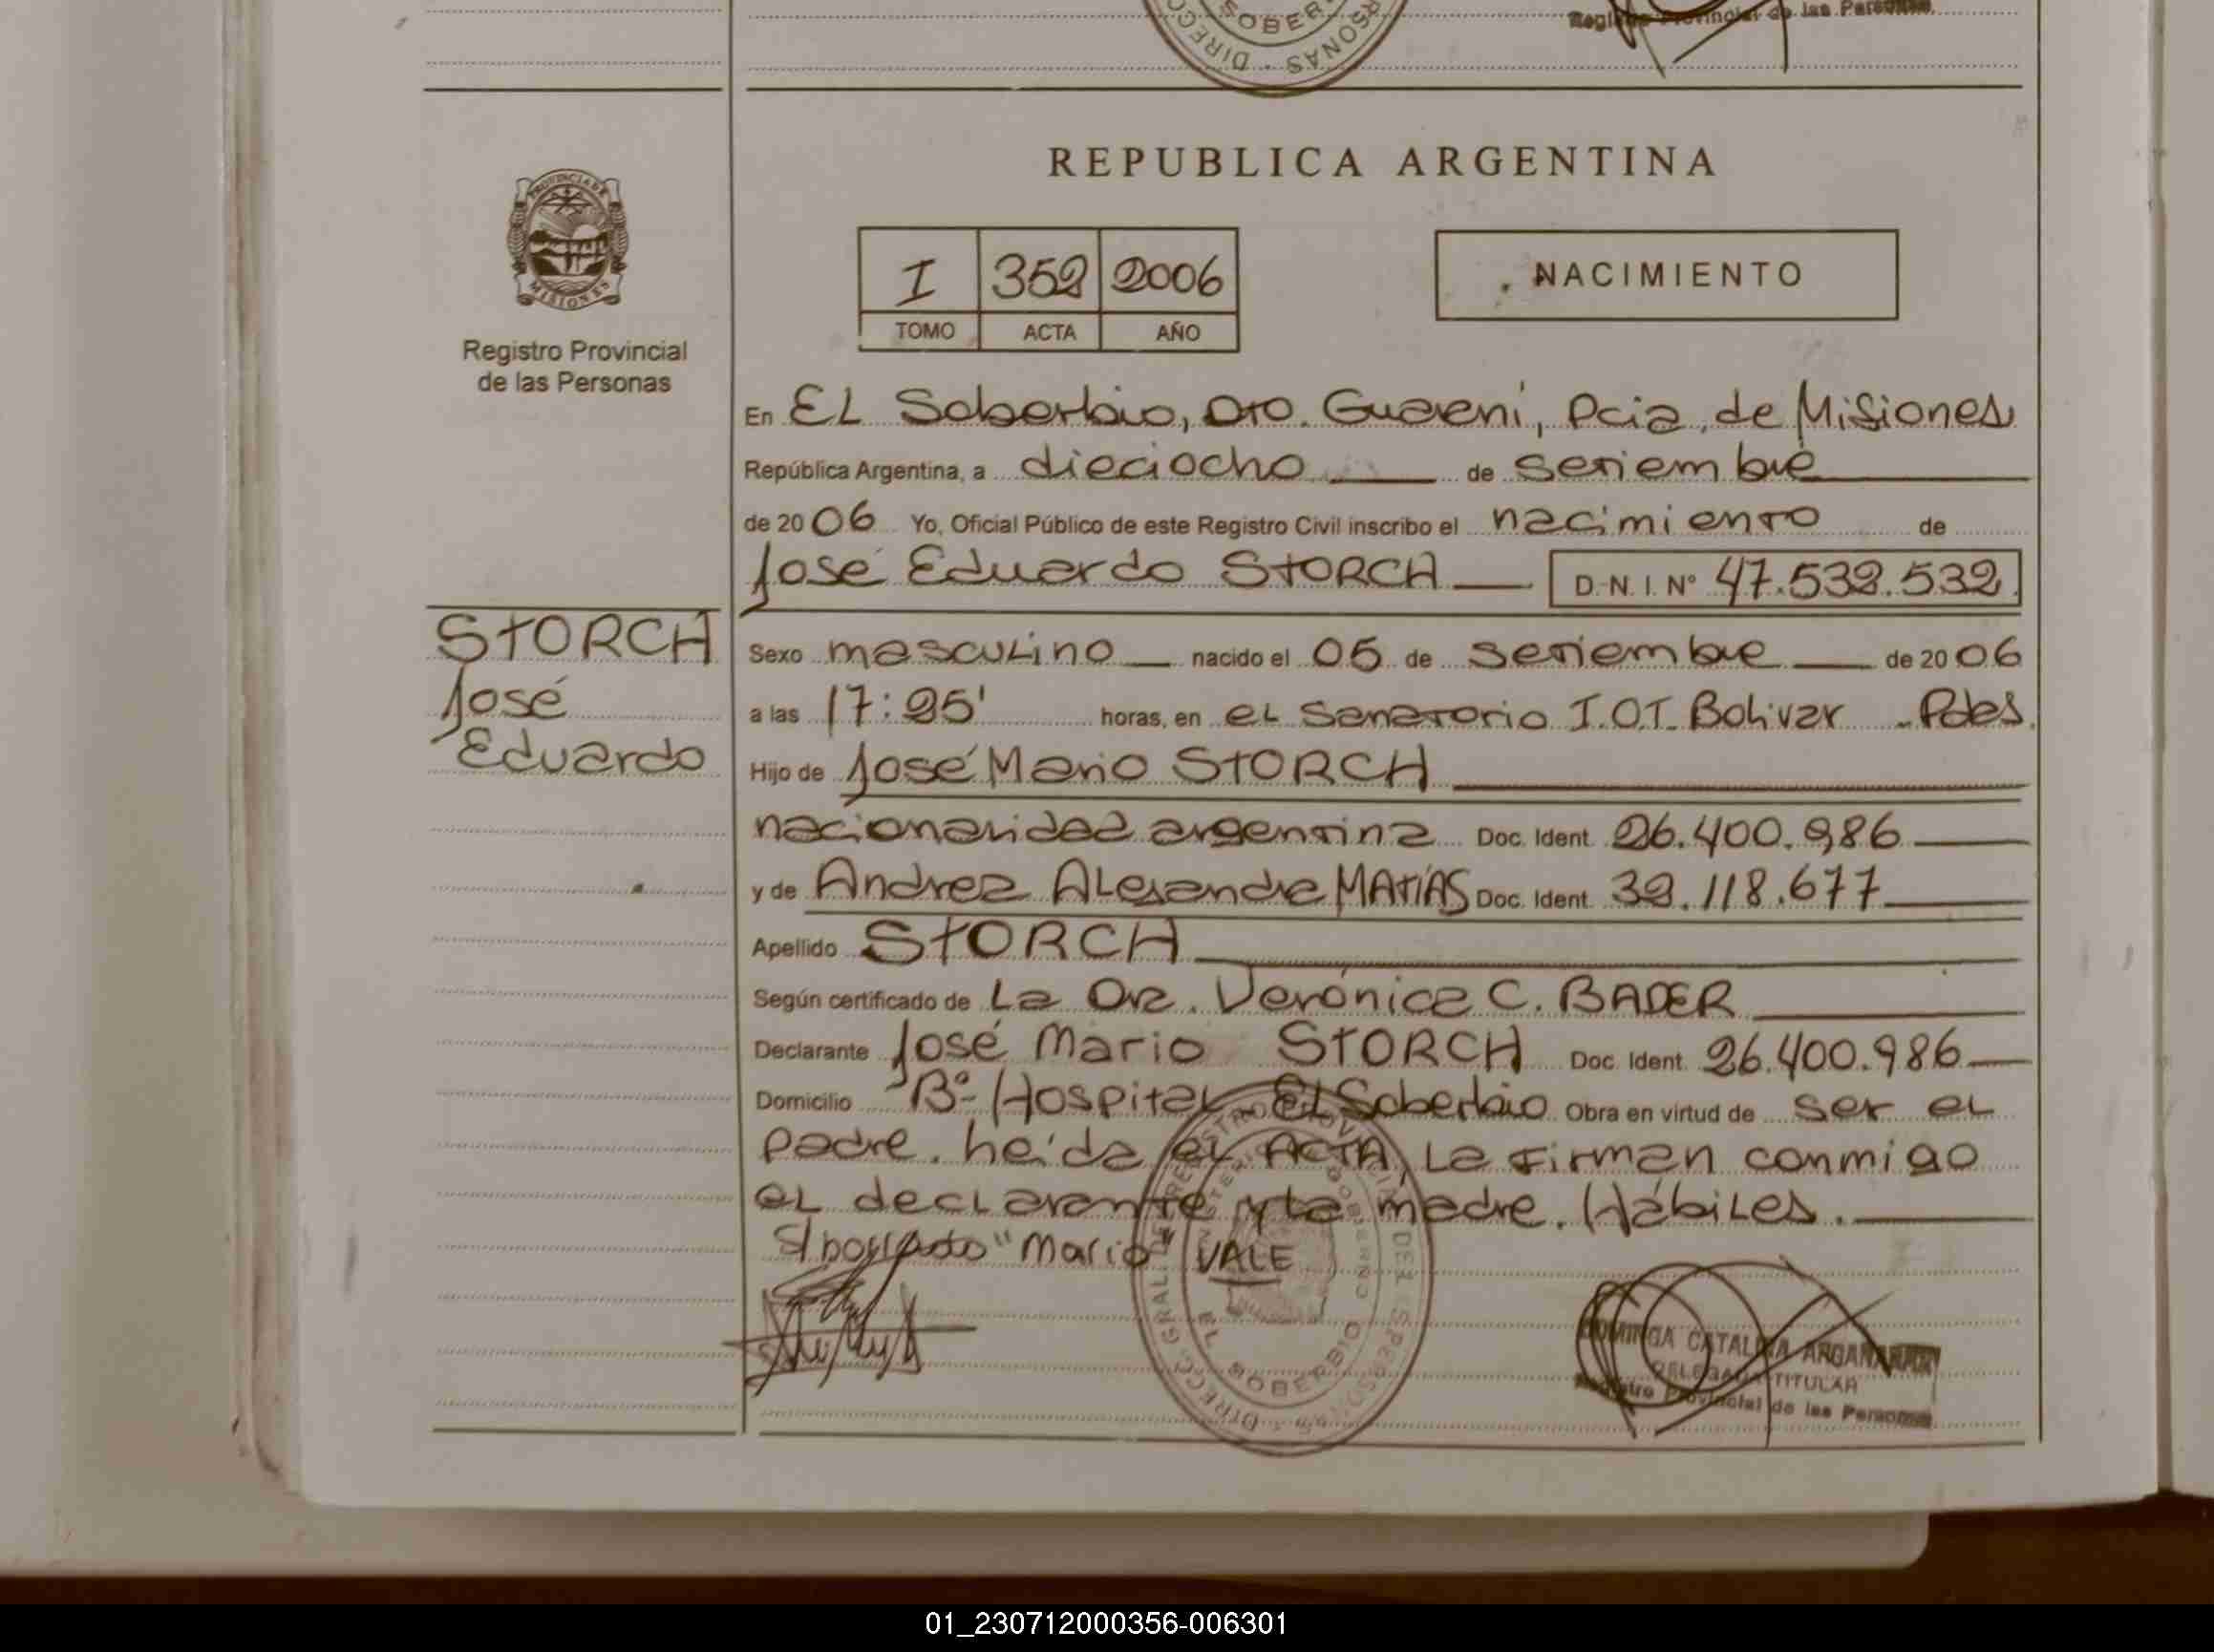 SOBER
DIRECC
SONAS
Registro Provincial de las Personas
REPUBLICA ARGENTINA
PROVINCIA DE
MISIONES
Registro Provincial
de las Personas
I 352 2006
TOMO ACTA AÑO
NACIMIENTO
En EL Soberbio, Dto. Guarani, Pcia, de Misiones
República Argentina, a dieciocho de setiembre
de 2006 Yo, Oficial Público de este Registro Civil inscribo el nacimiento de
José Eduardo STORCH D.N.I. Nº 47.532.532
STORCH
José
Eduardo
Sexo masculino nacido el 05 de setiembre de 2006
a las 17:25' horas, en el Sanatorio I.O.T. Bolivar - Pdas.
Hijo de José Mario STORCH
nacionalidad argentina Doc. Ident. 26.400.986
y de Andrea Alejandra MATÍAS Doc. Ident. 32.118.677
Apellido STORCH
Según certificado de La Dra. Verónica C. BADER
Declarante José Mario STORCH Doc. Ident. 26.400.986
Domicilio Bº Hospital El Soberbio Obra en virtud de ser el
padre. Leída el ACTA, La firman conmigo
el declarante y la madre. Hábiles.
S/borrado "Mario" VALE
EL SOBERBIO
DOMINGA CATALINA
DELEGADA TITULAR
Registro Provincial de las Personas
01_230712000356-006301